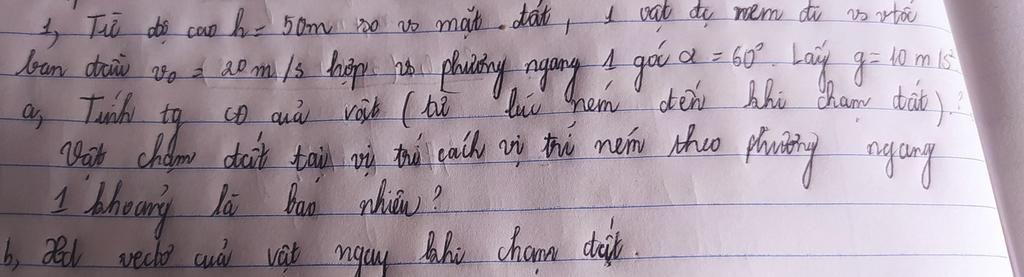 1, Từ độ cao h = 50m so vs mặt đất, 1 vật đc ném đi vs vtốc
ban đầu v₀ = 20m/s hợp vs phương ngang 1 góc α = 60°. Lấy g = 10 m/s²
a, Tính tg cđ của vật (từ lúc ném đến khi chạm đất)?
Vật chạm đất tại vị trí cách vị trí ném theo phương ngang
1 khoảng là bao nhiêu?
b, Xđ vectơ của vật ngay khi chạm đất.